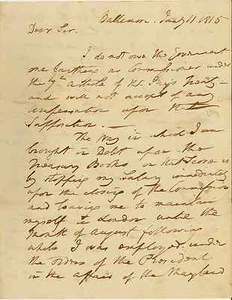 Baltimore. Jany 11. 1815
Dear Sir.
I do not owe the Government
one farthing as Commissioner under
the 7th Article of Mr Jay's Treaty
and will not accept of any
dispensation upon that
Supposition
The Way in which I am
brought in Debt upon the
Treasury Books on that Score is
by stopping my Salary immediately
upon the closing of the Commission
and leaving me to maintain
myself in London until the
Month of August following
while I was employed under
the orders of the President
in the affairs of the Maryland